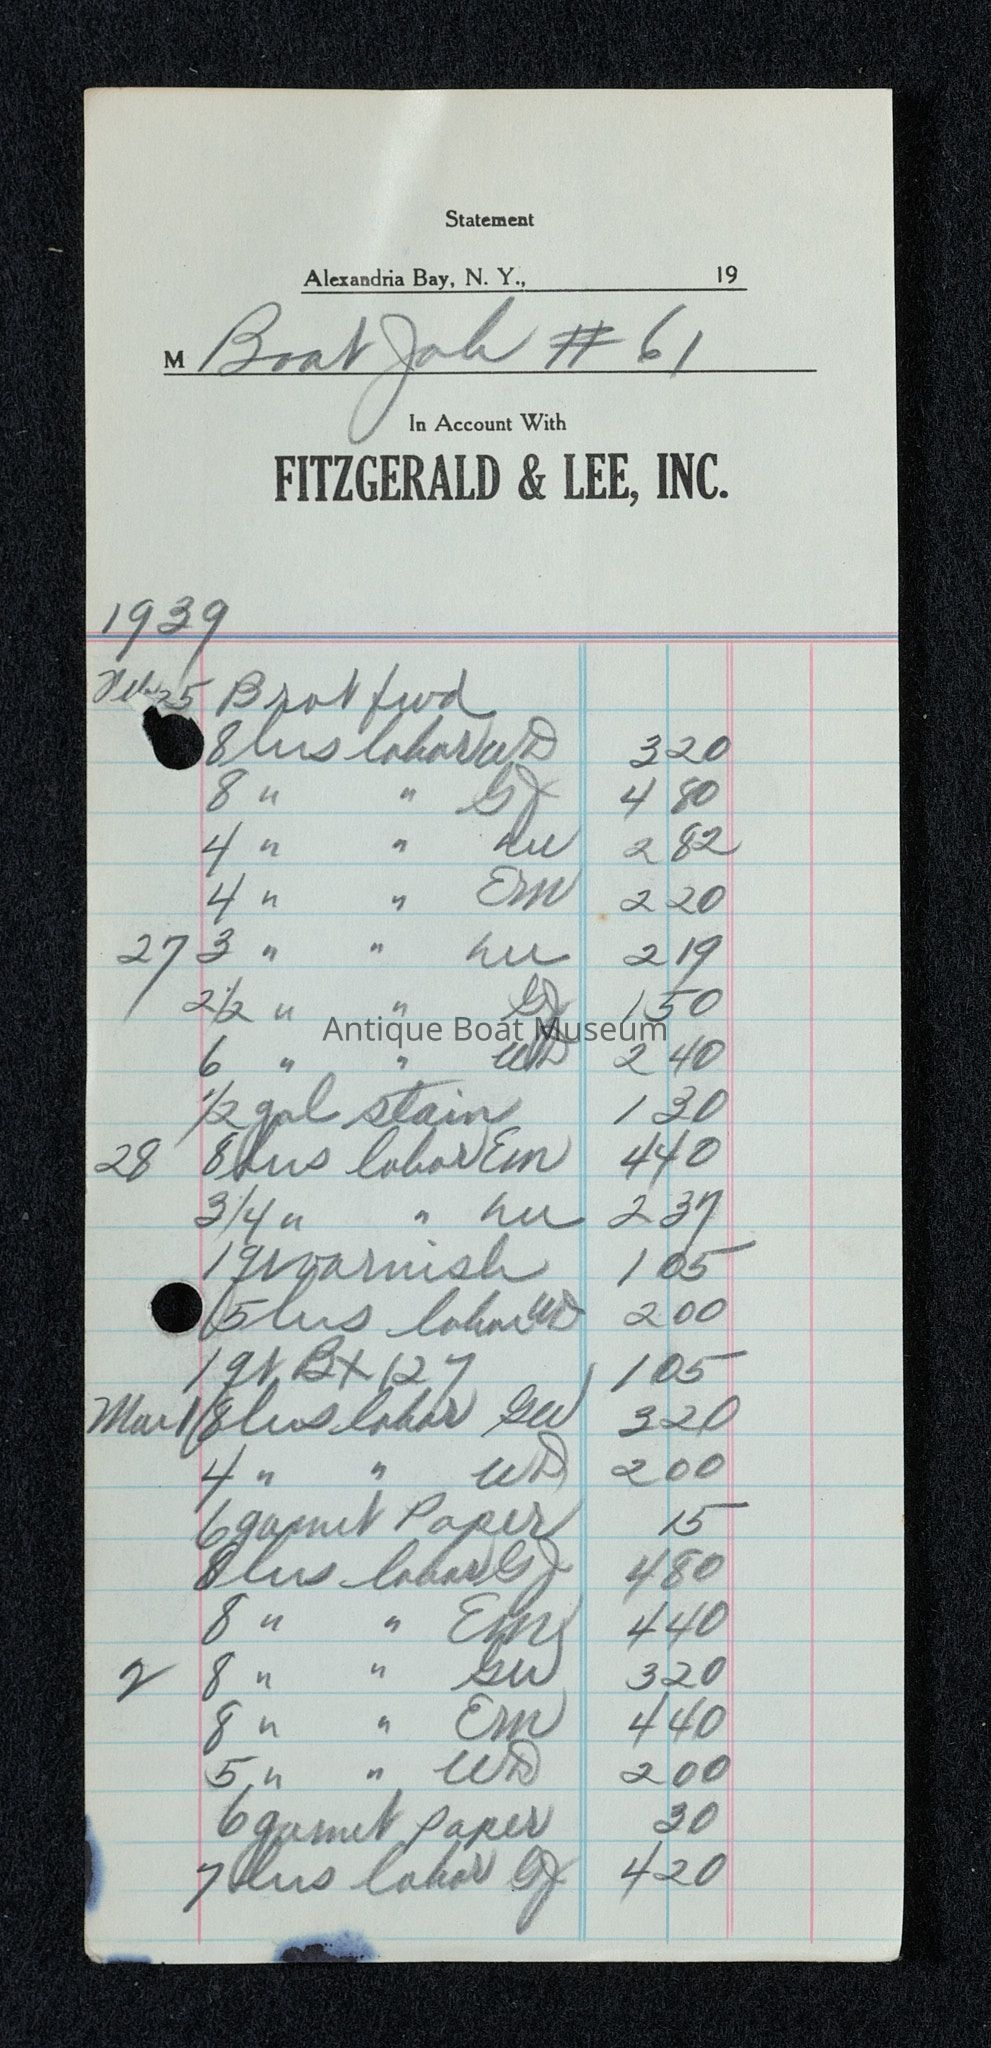 Statement
Alexandria Bay, N. Y., 19
M Boat Job # 61
In Account With
FITZGERALD & LEE, INC.
1939
Feb 25 Brot fwd
8 hrs labor WD 3 20
8 " " GJ 4 80
4 " " HU 2 82
4 " " EM 2 20
27 3 " " HU 2 19
2 1/2 " " GJ 1 50
Antique Boat Museum
6 " " WD 2 40
1/2 gal stain 1 30
28 8 hrs labor EM 4 40
3 1/4 " " HU 2 37
1 qt varnish 1 05
5 hrs labor WD 2 00
1 qt BX 127 1 05
Mar 1 8 hrs labor GW 3 20
4 " " WD 2 00
6 garnet Paper 15
8 hrs labor GJ 4 80
8 " " EM 4 40
2 8 " " GW 3 20
8 " " EM 4 40
5 " " WD 2 00
6 garnet paper 30
7 hrs labor GJ 4 20